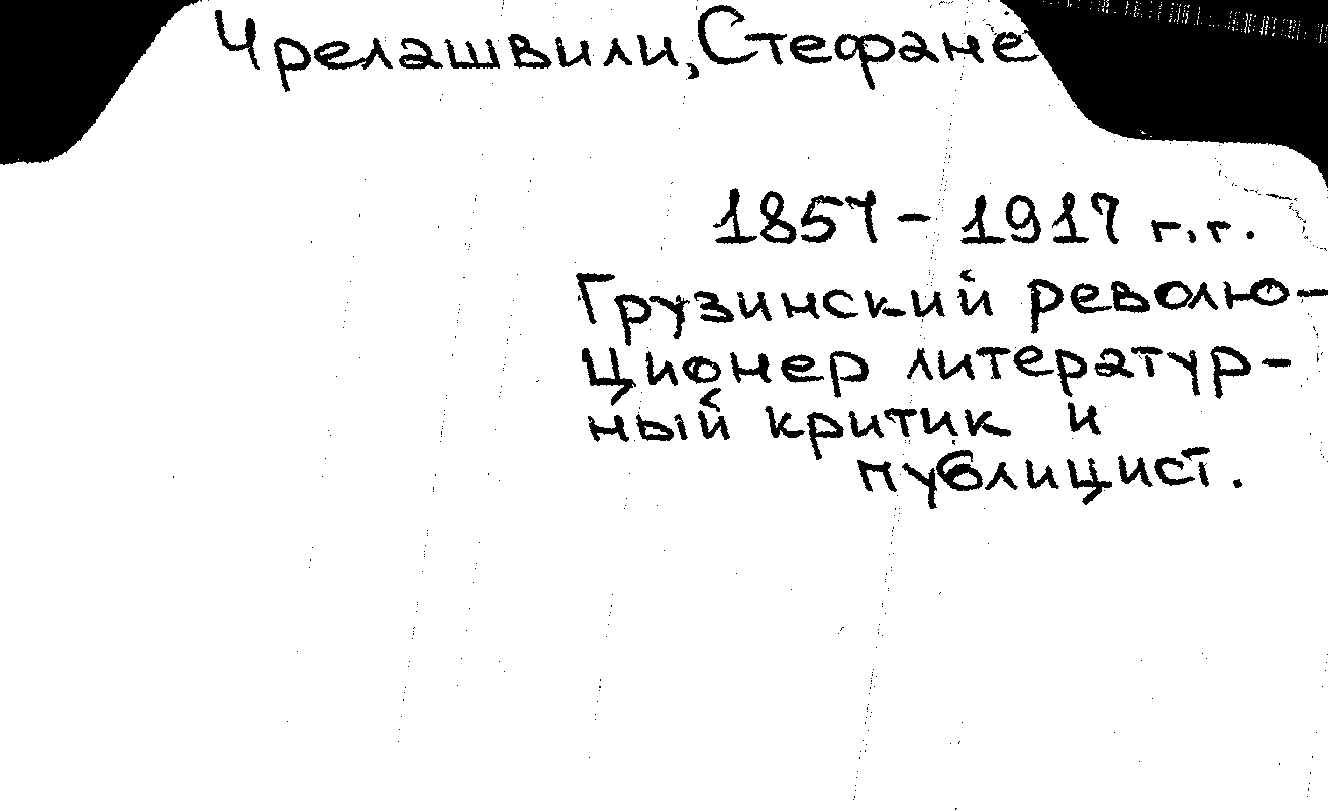 Чрелашвили, Стефане
1857 - 1917 г.г.
Грузинский револю-
ционер литератур-
ный критик и
публицист.